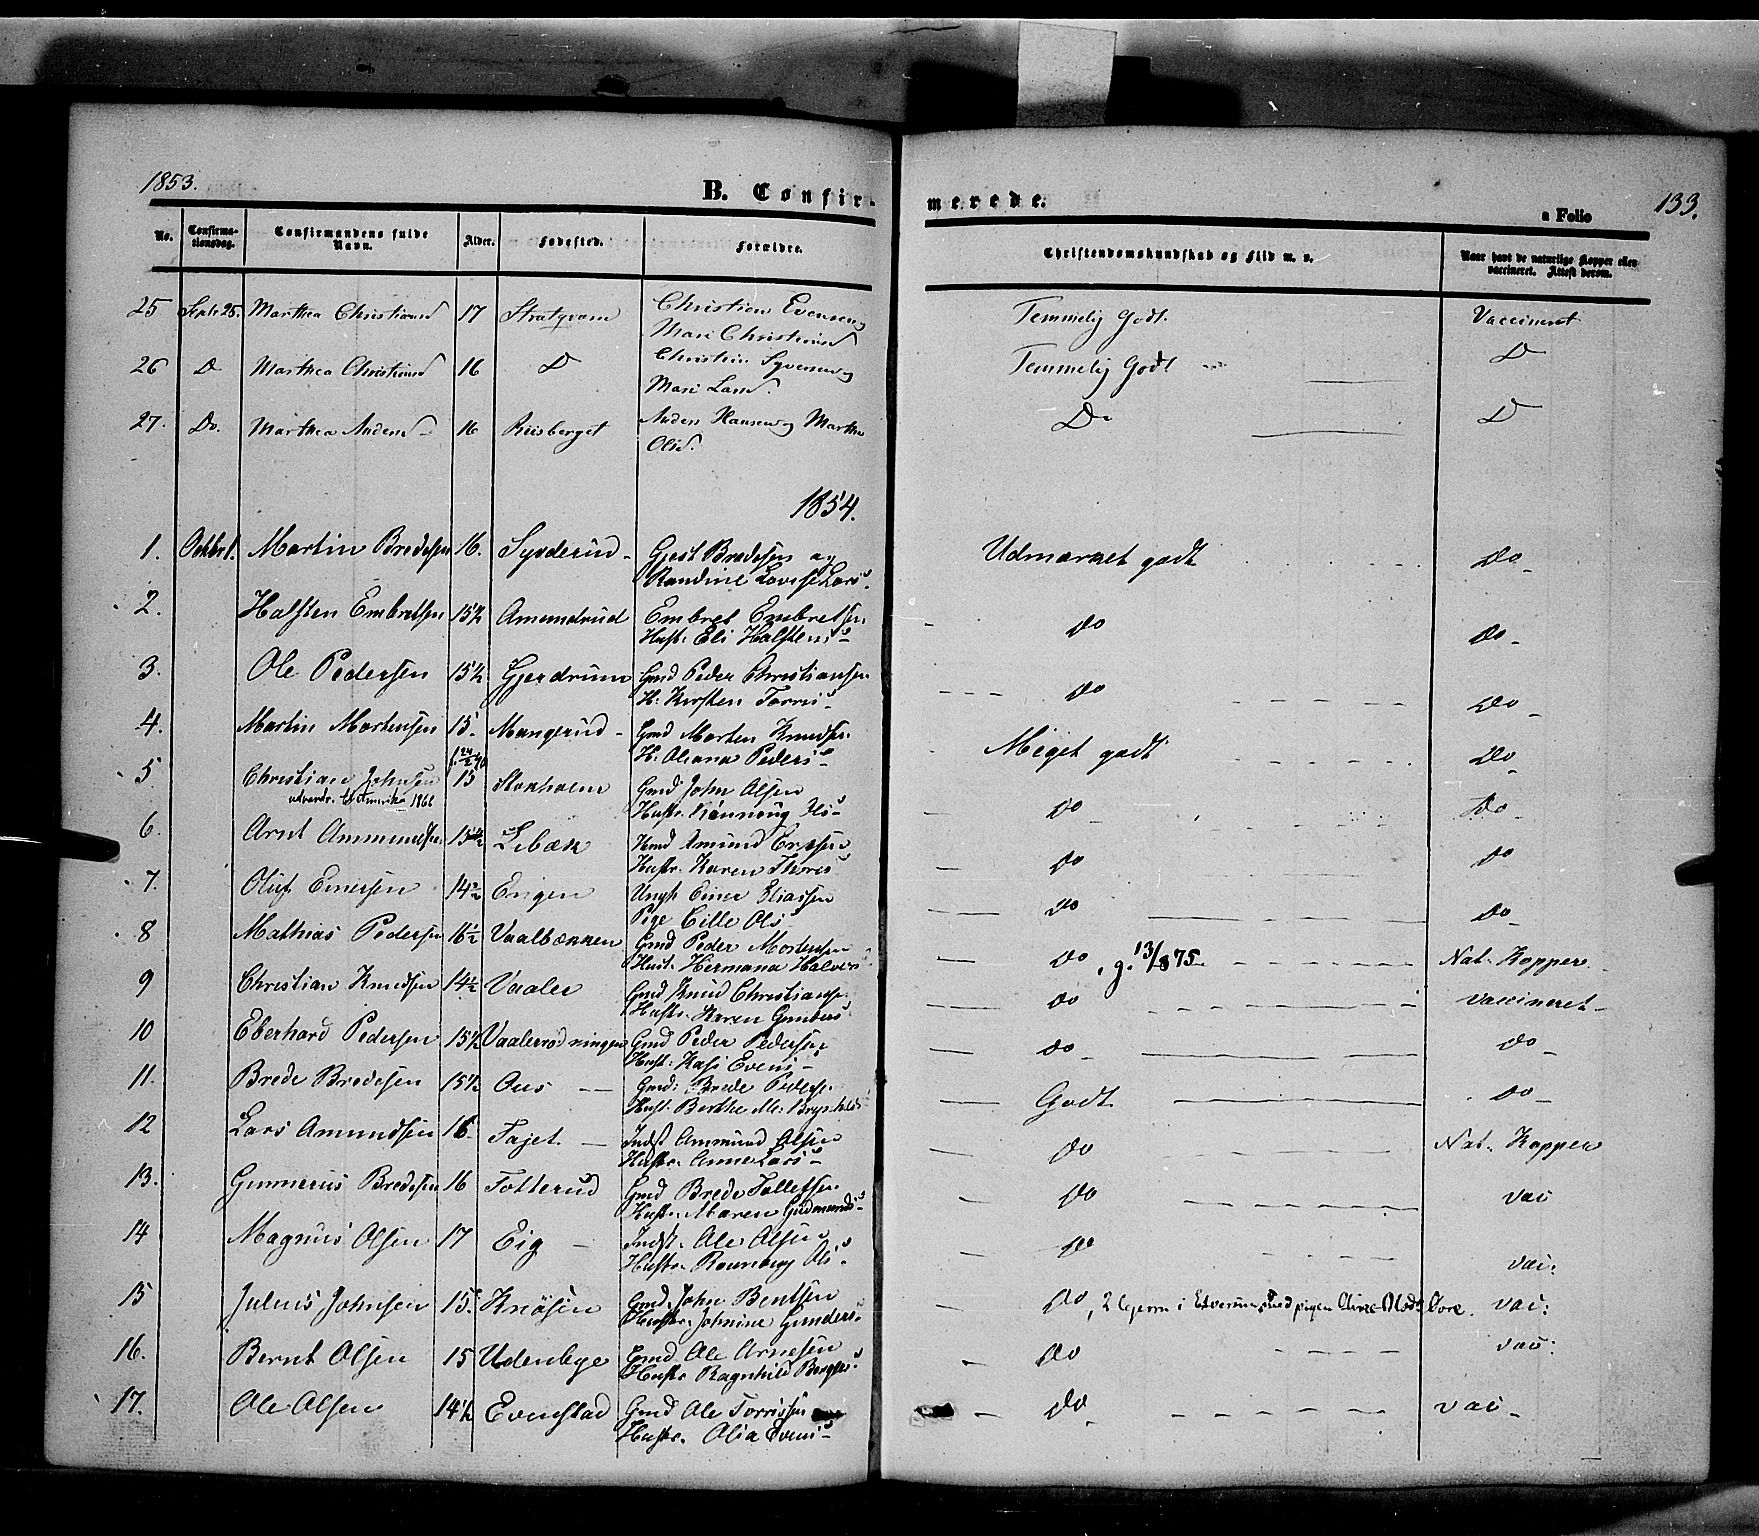 1853.
B. Confir-
merede.
a Folio
133.
No. Confirma-tionsdag. Confirmandens fulde Navn. Alder. Fødested. Forældre. Christendomskundskab og Flid m. v. Naar havt de naturlige Kopper eller vaccineret. Attest derom.
25 Septr 25. Marthea Christiansd 17 Christian Evensen og Temmelig Godt. Vaccineret
Mari Christiansd
26 D Marthea Christiansd 16 D Christian Syversen og Temmelig Godt D
Mari Larsd.
27. Do. Marthea Andersd 16 Riisberget Anders Hansen og Marthe Do D
Olsd.
1854.
1. Octbr 1. Martin Bredesen 16. Synderud Gjest Bredesen og Udmærket godt Do
Randine Lovise Lars
2. Halsten Embretsen 15½ Amundrud Embret Embretsen Do Do
Hustr. Eli Halstens
3. Ole Pedersen 15½ Gjerdrum Gmd Peder Christiansen Do Do
H. Kirsten Torris
4. Martin Mortensen 15. Mangerud Gmd Morten Knudsen Meget godt Do
H. Oleana Peders
5 Christian Johnsen 15 Stokholm Gmd John Olsen Do Do
udvandr. til Amerika 1866 Hustr. Rønnoug Ols
6. Arnt Ammundsen 15½ Libæk Amund Do Do
Hustr. Karen Thoris
7. Oluf Einersen 14½ Engen Ungk Einer Eliassen Do Do
Pige Cille Ols
8 Mathias Pedersen 16½ Vaalbækken Gmd Peder Mortensen Do , g. 13/8 75 Nat. Kopper
Hust. Hermana Halvors
9 Christian Knudsen 14½ Vaaler Gmd Knud Christiansen Do vaccineret
Hustr. Karen Gunders
10 Eberhard Pedersen 15½ Vaalerrødningen Gmd Peder Pedersen Do Do
Hust. Kari Evens
11. Brede Bredesen 15½ Ous Gmd. Brede Peders. Godt Do
Hust. Berthe M. Brynhilds
12 Lars Amundsen 16 Fajet Indst Ammund Olsen Do Nat. Kopper
Hustr. Anne Lars
13. Gunnerius Bredesen 16 Totterud Gmd Brede Tollefsen Do vac
Hustr. Maren Gudmunds
14 Magnus Olsen 17 Eig Indst. Ole Olsen Do vac.
Hustr. Rønnoug Ols.
15 Julius Johnsen 15. Knøsen Gmd. John Bentsen Do, 2 Gjerm i Elverum, med pigen Vac:
Hustr. Johnine Gunders
16. Bernt Olsen 15 Udenbye Gmd Ole Arnesen Do vac.
Hustr Ragnhild
17. Ole Olsen 14½ Evenstad Gmd Ole Torrissen Do vac
Hustr. Olia Evens